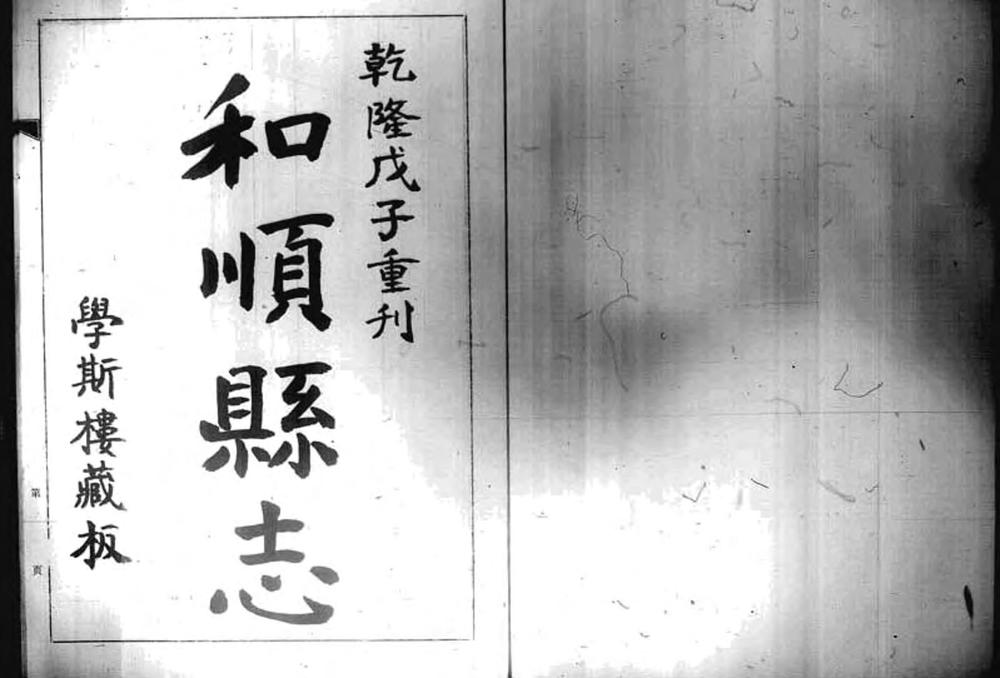 乾隆戊子重刊
和順縣志
學斯樓藏板
第
頁